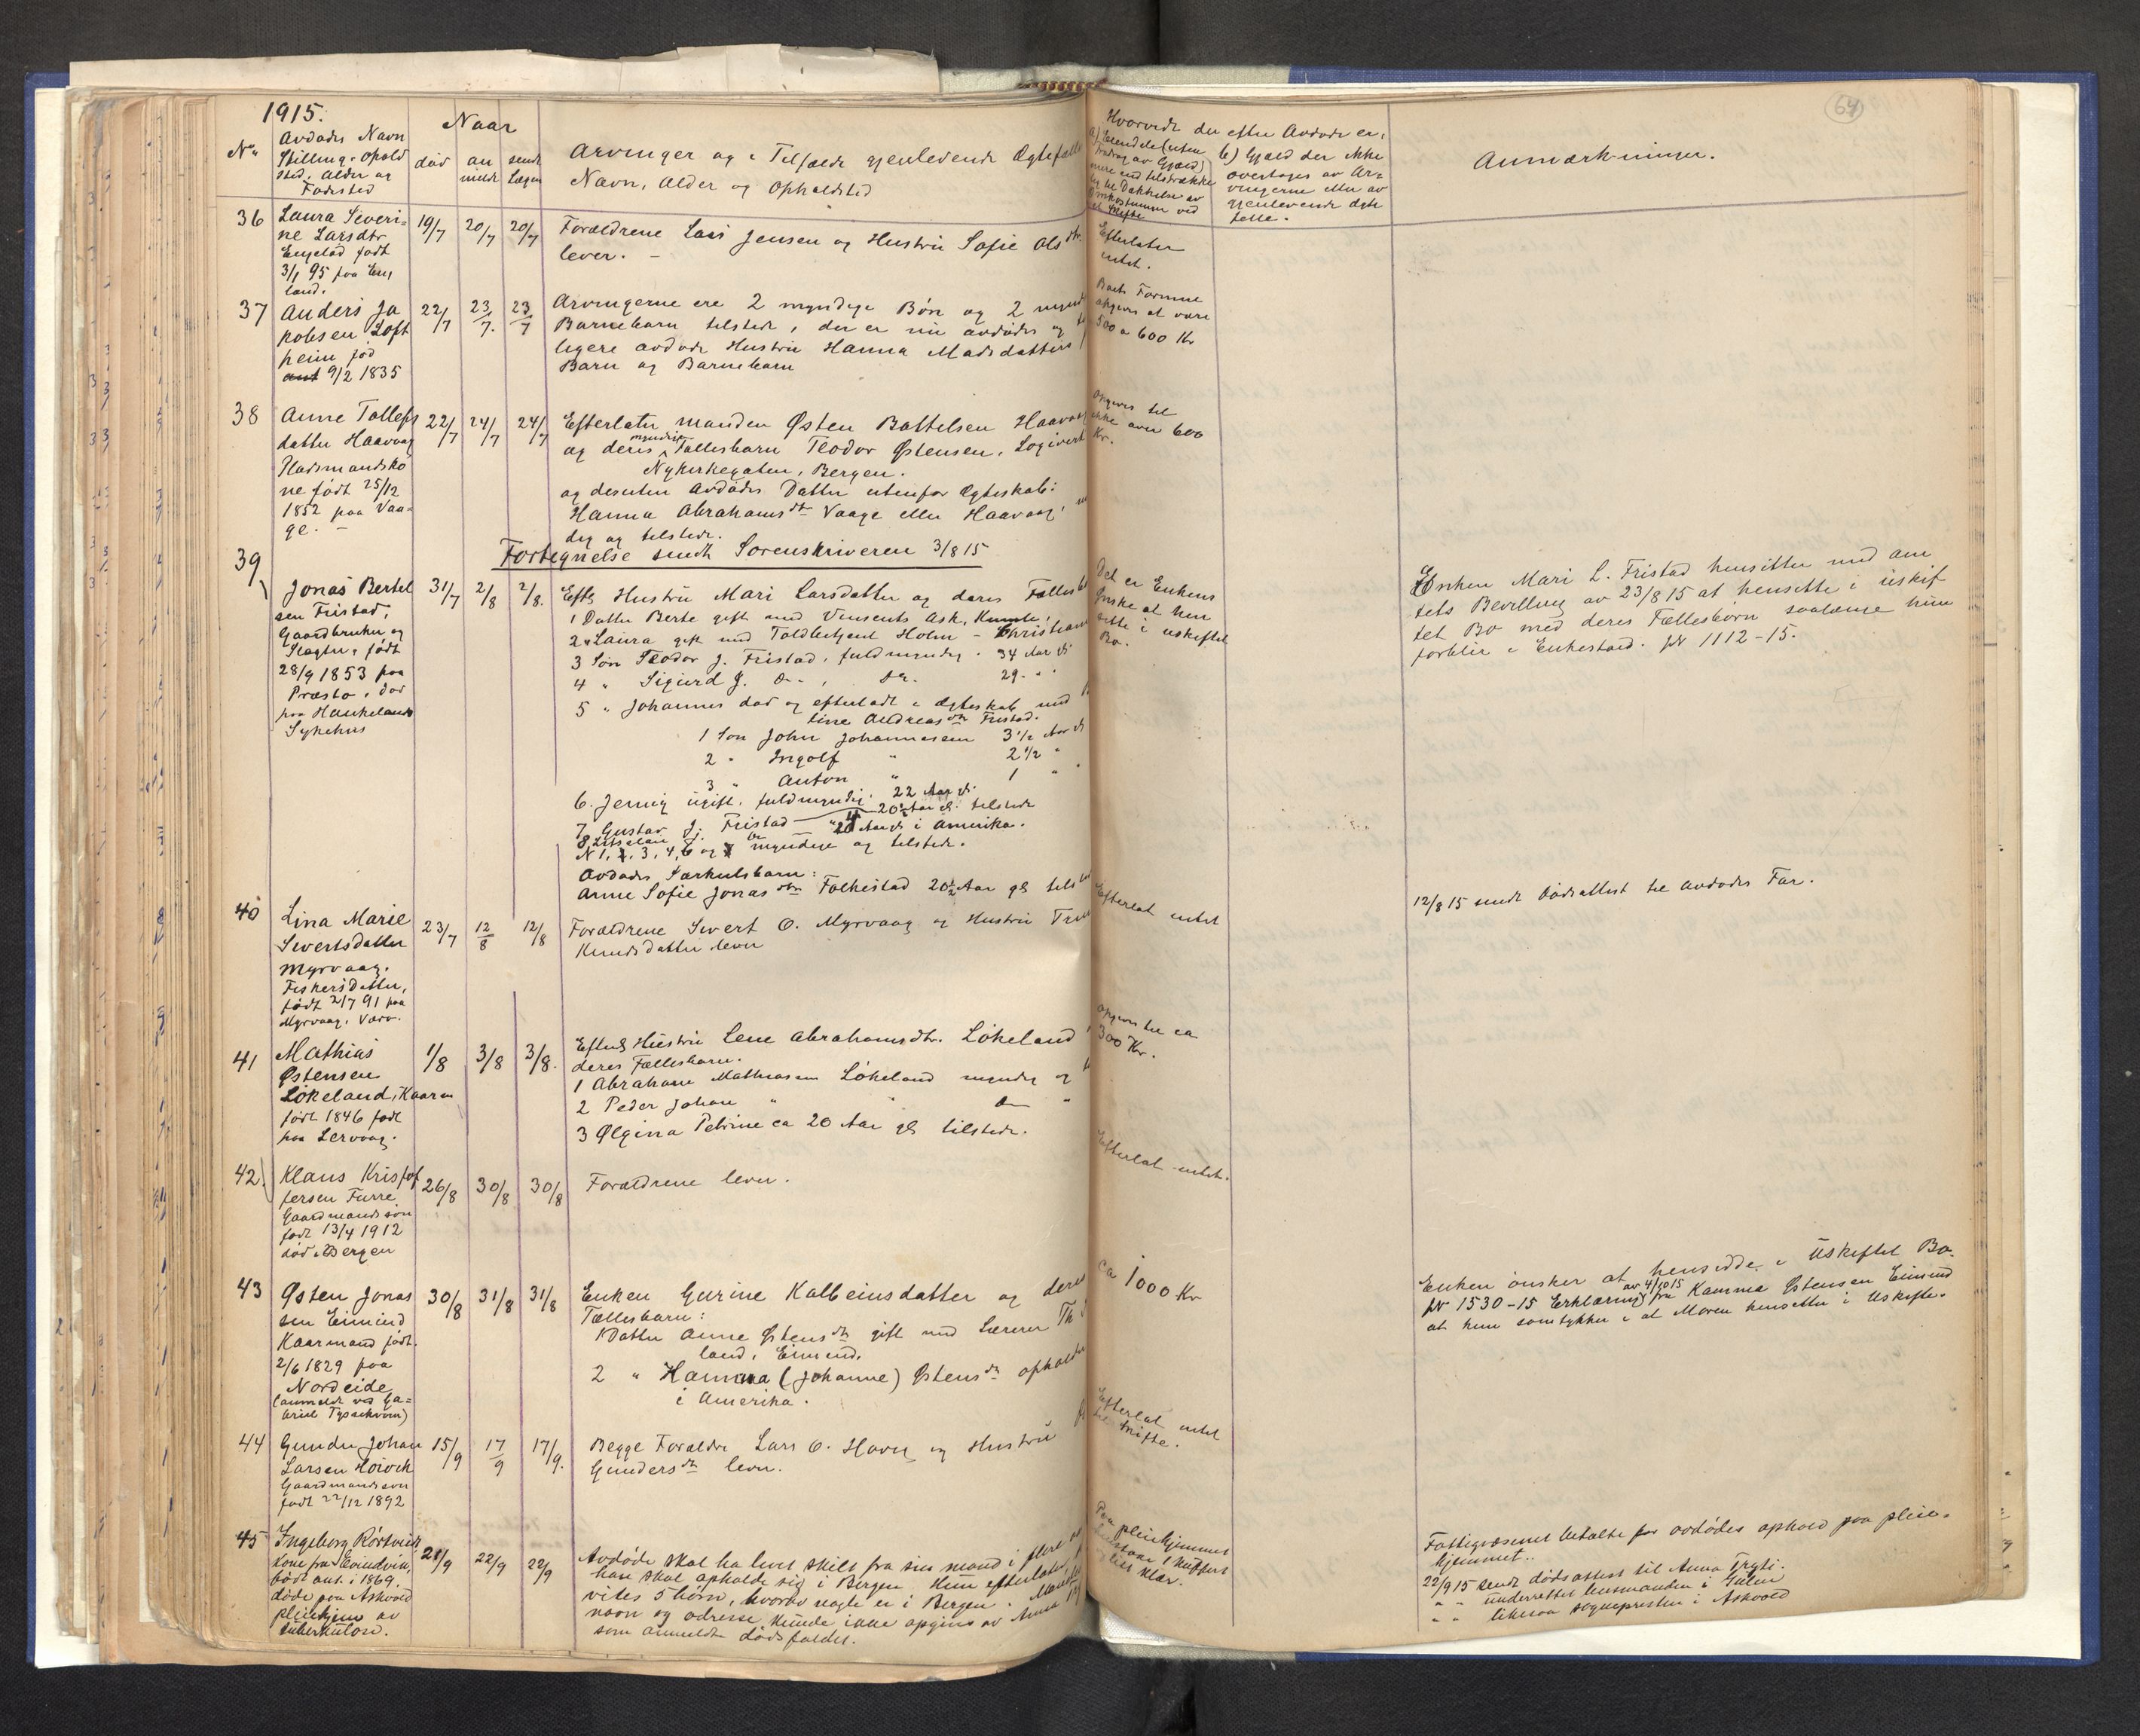 64
1915.
No
Avdødes Navn
Stilling, Ophold
sted, Alder og
Fødested
Naar
død
an
meldt
sendt
Lagen
Arvinger og i Tilfælde gjenlevende Ægtefælle
Navn, Alder og Opholdsted
Hvorvidt der efter Avdøde er:
a) Eiendele (uten
Fradrag av Gjæld)
mere end tilstrække
lig til Dækkelse av
Omkostninger ved
et Skifte
b) Gjæld der ikke
overtages av Ar-
vingerne eller av
gjenlevende Ægte
fælle.
Anmærkninger.
36
Laura Severi-
ne Larsdtr
Engelad født
3/1 95 paa Eng
land.
19/7
20/7
20/7
Forældrene Lars Jensen og Hustru Sofie Olsdtr.
lever. -
Efterlater
intet.
37
Anders Ja
kobsen Loft
heim fød
ant 9/2 1835
22/7
23/7.
23/7
Arvingerne ere 2 myndige Børn og 2 mynd
Barnebarn tilstede, der er nu avdødes og
ligere avdøde Hustru Hanna Madsdatters
Barn og Barnebarn
Boets Formue
opgives at være
500 a 600 Kr
38
Anne Tollefs
datter Haavaag
Pladsmandsko
ne født 25/12
1852 paa Vaa-
ge. -
22/7
24/7
24/7
Efterlater manden Østen Battelsen Haavaag
og deres myndige Fællesbarn Teodor Østensen, Logivert
Nykirkegaten, Bergen.
og desuten Avdødes Datter utenfor Ægteskab:
Hanna Abrahamsdtr Vaage eller Haavaag,
dig og tilstede.
Opgives til
ikke over 600
Kr.
Fortegnelse sendt Sorenskriveren 3/8 15
39
Jonas Bertel
sen Fristad,
Gaardbruker og
Slagter, født
28/9 1853 paa
Præstø, død
paa Haukelands
Sykehus
31/7
2/8
2/8.
Eftlg Hustru Mari Larsdatter og deres Fælles
1 Datter Berte gift med Vensents Ask,
2 " Laura gift med Toldbetjent Holm - Christian
3 Søn Teodor J. Fristad, fuldmyndig. 34 Aar gl
4 " Sigurd J. Do. , do. 29. " "
5 " Johannes død og efterladt i Ægteskab med
Line Andreasdtr Fristad.
1 Søn John Johannesen 3 1/2 Aar gl
2 " Ingolf " 2 1/2 "
3 " Anton " 1 "
6. Jenny ugift, fuldmyndig, 22 Aar gl.
7 Gustav J. Fristad 20 1/2 Aar gl. tilstede
8 20 Aar gl i Amerika.
N 1, 2, 3, 4, 6 og 7 myndige og tilstede.
Avdødes Særkulsbarn:
Anne Sofie Jonasdtr Folkestad 20 1/2 Aar gl tilst
Det er Enkens
Ønske at hen
sitte i uskiftet
Bo.
Enken Mari L. Fristad hensitter med Am
tets Bevilling av 23/8 15 at hensitte i uskif
tet Bo med deres Fællesbørn saalænge hun
forblir i Enkestand. JN 1112-15.
40
Lina Marie
Sivertsdatter
Myrvaag.
Fiskersdatter,
født 2/7 91 paa
Myrvaag, Værø.
23/7
12/8
12/8
Forældrene Sivert O. Myrvaag og Hustru
Knudsdatter lever
Efterlat intet
12/8 15 sendt Dødsattest til Avdødes Far.
41
Mathias
Østensen
Løkeland, Kaarm
født 1846 født
paa Lervaag.
1/8
3/8
3/8.
Eftlg Hustru Lene Abrahamsdtr. Løkeland
deres Fællesbarn.
1 Abraham Mathiasen Løkeland myndig og
2 Peder Johan " " do "
3 Olgina Petrine ca 20 Aar gl tilstede.
Opgives til ca
300 Kr.
42
Klaus Kristof
fersen Furre
Gaardmandssøn
født 13/4 1912
død i Bergen
26/8
30/8
30/8
Forældrene lever.
Efterlat intet.
43
Østen Jonas
sen Eimind
Kaarmand født
2/6 1829 paa
Nordeide
(anmeldt ved Ga-
briel Tyssekvam)
30/8
31/8
31/8
Enken Gurine Kolbeinsdatter og deres
Fællesbarn:
1 Datter Anne Østensdtr gift med Lærer Th
land, Eimind.
2 " Hamma (Johanne) Østensdtr opholder
i Amerika.
ca 1000 Kr
Enken ønsker at hensidde i Uskiftet Bo.
JN 1530-15 Erklæring av 4/10 15 fra Kamma Østensen Eimind
at hun samtykker i at Moren hensitter i Uskifte.
44
Gunder Johan
Larsen Hovoch
Gaardmandssøn
født 22/12 1892
15/9
17/9
17/9.
Begge Forældre Lars O. Havn og Hustru
Gundersdtr lever.
Efterlat intet
til Skifte.
45
Ingeborg Rørtveit
kone fra Eivindvik,
født ant. i 1869.
døde paa Askvold
pleiehjem av
tuberkulose.
21/9
22/9
22/9
Avdøde skal ha levet skilt fra sin mand i flere
han skal opholde sig i Bergen. Hun efterlater,
vides 5 børn, hvorav nogle er i Bergen. Mandens
navn og adresse kunde ikke opgives av Anna
som anmeldte dødsfaldet.
Paa pleiehjemmet
1 kuffert
litt klær.
Fattigvæsenet betalte for avdødes ophold paa pleie-
hjemmet..
22/9 15 sendt dødsattest til Anna Tryti.
" " underrettet lensmanden i Gulen
" " likesaa sognepresten i Askvold